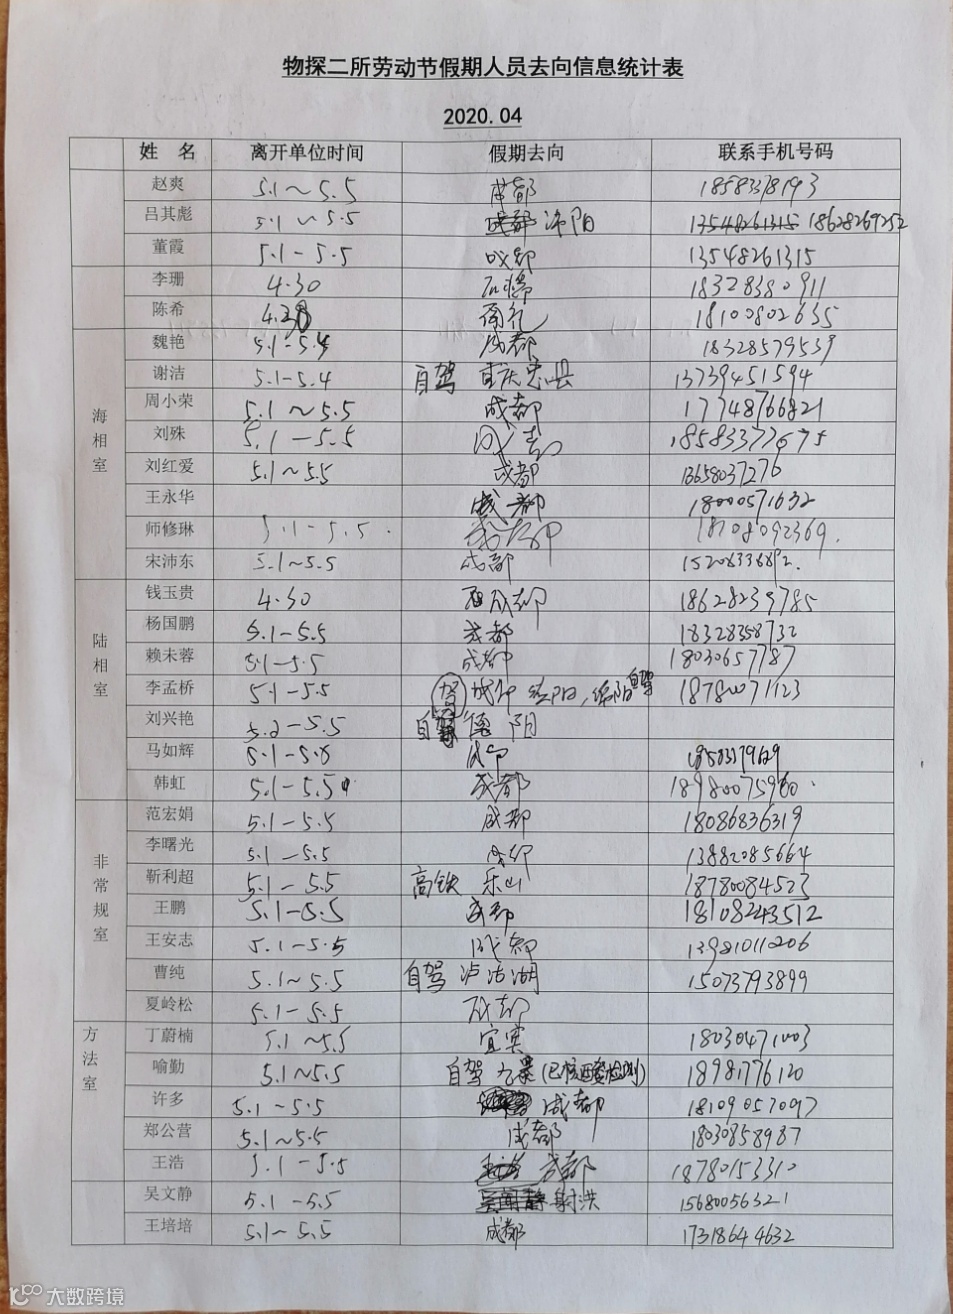 物探二所劳动节假期人员去向信息统计表
2020.04
姓 名 离开单位时间 假期去向 联系手机号码
赵爽 5.1～5.5 成都 18583378193
吕其彪 5.1～5.5 成都 沐阳 13548261315 18628269252
董霞 5.1-5.5 成都 13548261315
李珊 4.30 18328380911
陈希 4.30 18100802635
海相室
魏艳 5.1-5.4 成都 18328579539
谢洁 5.1-5.4 自驾 重庆忠县 13739451594
周小荣 5.1～5.5 成都 17748766821
刘殊 5.1-5.5 成都 18583377675
刘红爱 5.1～5.5 成都 13658037276
王永华 成都 18000571632
师修琳 5.1-5.5 成都 18108092369.
宋沛东 5.1～5.5 成都
陆相室
钱玉贵 4.30 成都 18628239785
杨国鹏 5.1-5.5 成都 18328358732
赖未蓉 5.1-5.5 成都 18030657787
李孟桥 5.1-5.5 驾 成都 绵阳 自驾 18780071123
刘兴艳 5.2-5.5 自驾 德阳
马如辉 5.1-5.5 成都
韩虹 5.1-5.5 成都 18980075960
非常规室
范宏娟 5.1-5.5 成都 18086836319
李曙光 5.1-5.5 成都 13882085664
靳利超 5.1-5.5 高铁 乐山 18780084523
王鹏 5.1-5.5 成都 18108243512
王安志 5.1-5.5 成都 13981011206
曹纯 5.1～5.5 自驾 泸沽湖 15073793899
夏岭松 5.1-5.5 成都
方法室
丁蔚楠 5.1～5.5 宜宾 18030471003
喻勤 5.1～5.5 自驾 (已核酸检测) 18981776120
许多 5.1～5.5 成都 18109057097
郑公营 5.1～5.5 成都 18030858987
王浩 5.1-5.5 成都 18780153310
吴文静 5.1-5.5 吴闻静 射洪 15680056321
王培培 5.1～5.5 成都 17318644632
大数跨境